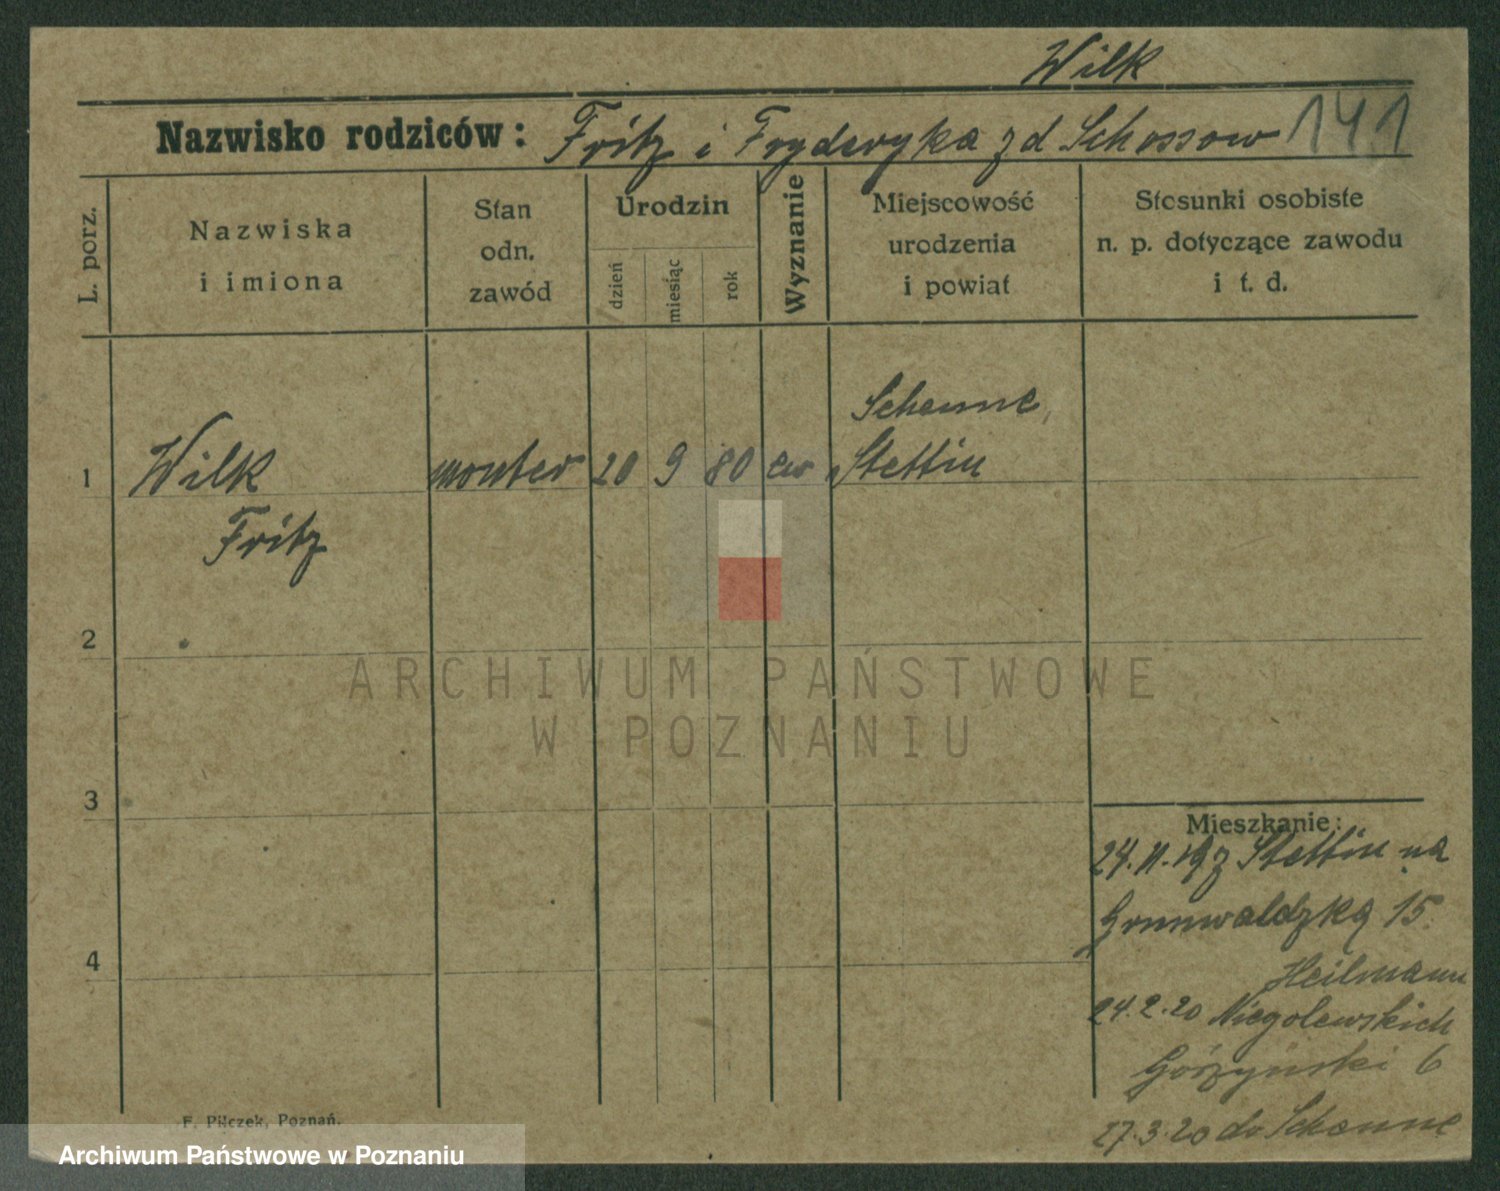 Wilk
Nazwisko rodziców: Fritz i Fryderyka z d Schossow 141
L. porz.
Nazwiska
i imiona
Stan
odn.
zawód
Urodzin
dzień
miesiąc
rok
Wyznanie
Miejscowość
urodzenia
i powiat
Stosunki osobiste
n. p. dotyczące zawodu
i t. d.
Schanne,
1 Wilk monter 20 9 80 ew Stettin
Fritz
2
ARCHIWUM PAŃSTWOWE
W POZNANIU
3
Mieszkanie:
24.11.19 z Stettin na
Grunwaldzką 15.
Heilmann
4
24.2.20 Niegolewskich
Górzyński 6
27.3.20 do Schanne
F. Pilczek, Poznań.
Archiwum Państwowe w Poznaniu